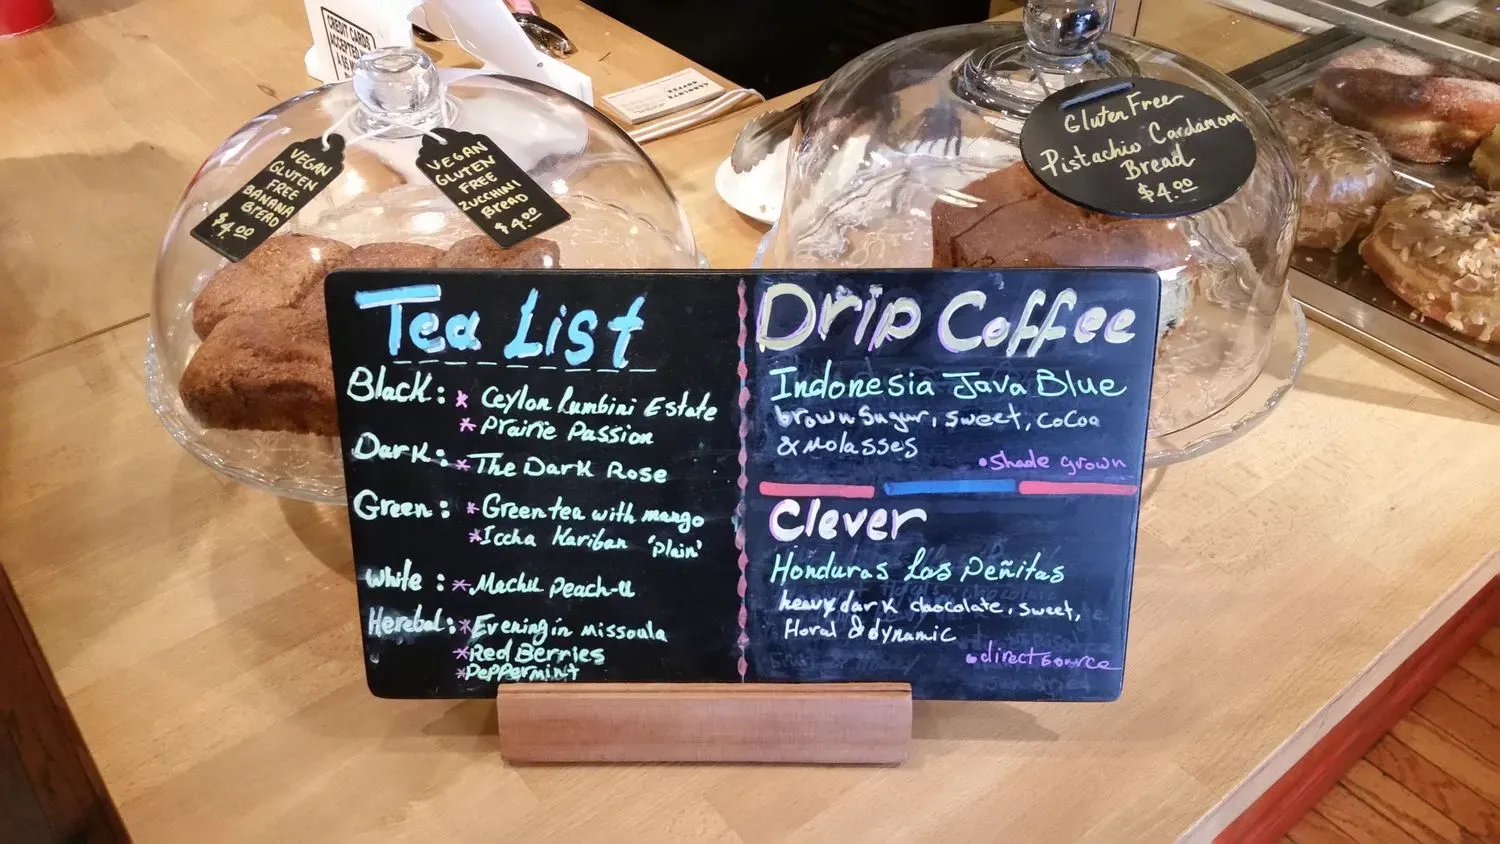 CREDIT CARDS
ACCEPTED
VEGAN
GLUTEN
FREE
BANANA
BREAD
$4.00
VEGAN
GLUTEN
FREE
ZUCCHINI
BREAD
$4.00
Gluten Free
Pistachio Cardamom
Bread
$4.00
Tea List
Black: * Ceylon Lumbini Estate
* Prairie Passion
Dark: * The Dark Rose
Green: * Green tea with mango
* Iccha Hariban 'plain'
White: * Machu peach-u
Herebal: * Evening in missoula
* Red Berries
* Peppermint
Drip Coffee
Indonesia Java Blue
brown Sugar, sweet, cocoa
& molasses
• Shade grown
Clever
Honduras Las Peñitas
heavy dark chocolate, sweet,
floral & dynamic
• direct source